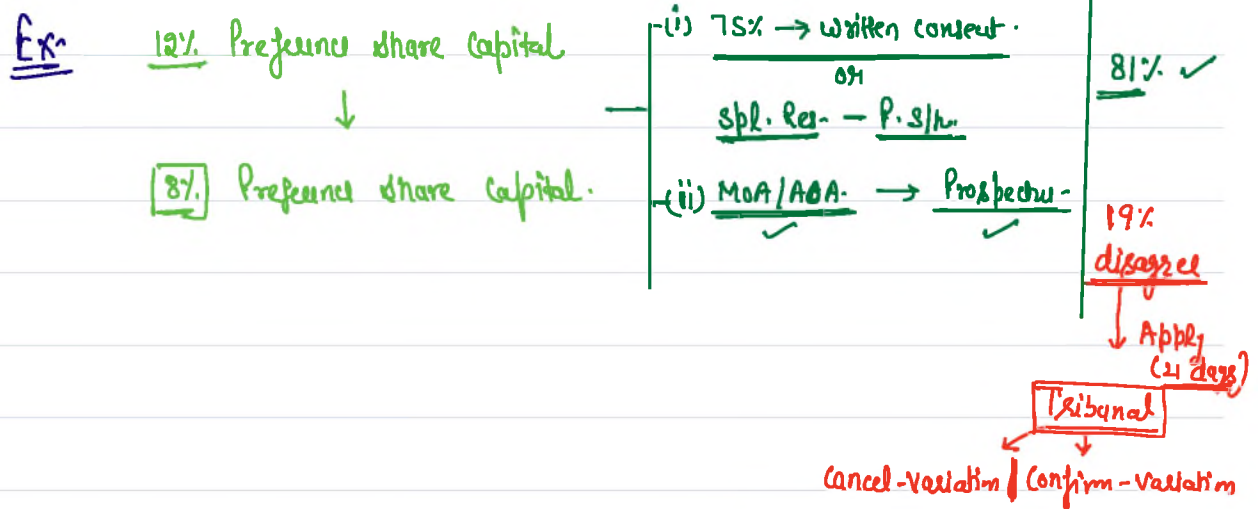 Ex-
12% Preference share capital
↓
8% Preference share capital.
(i) 75% → written consent.
or
Spl. Res. - P. S/h.
(ii) MOA/AOA. → Prospectus-
✓ ✓
81% ✓
19%
disagree
↓ Apply
(21 days)
Tribunal
Cancel-variation | Confirm-variation